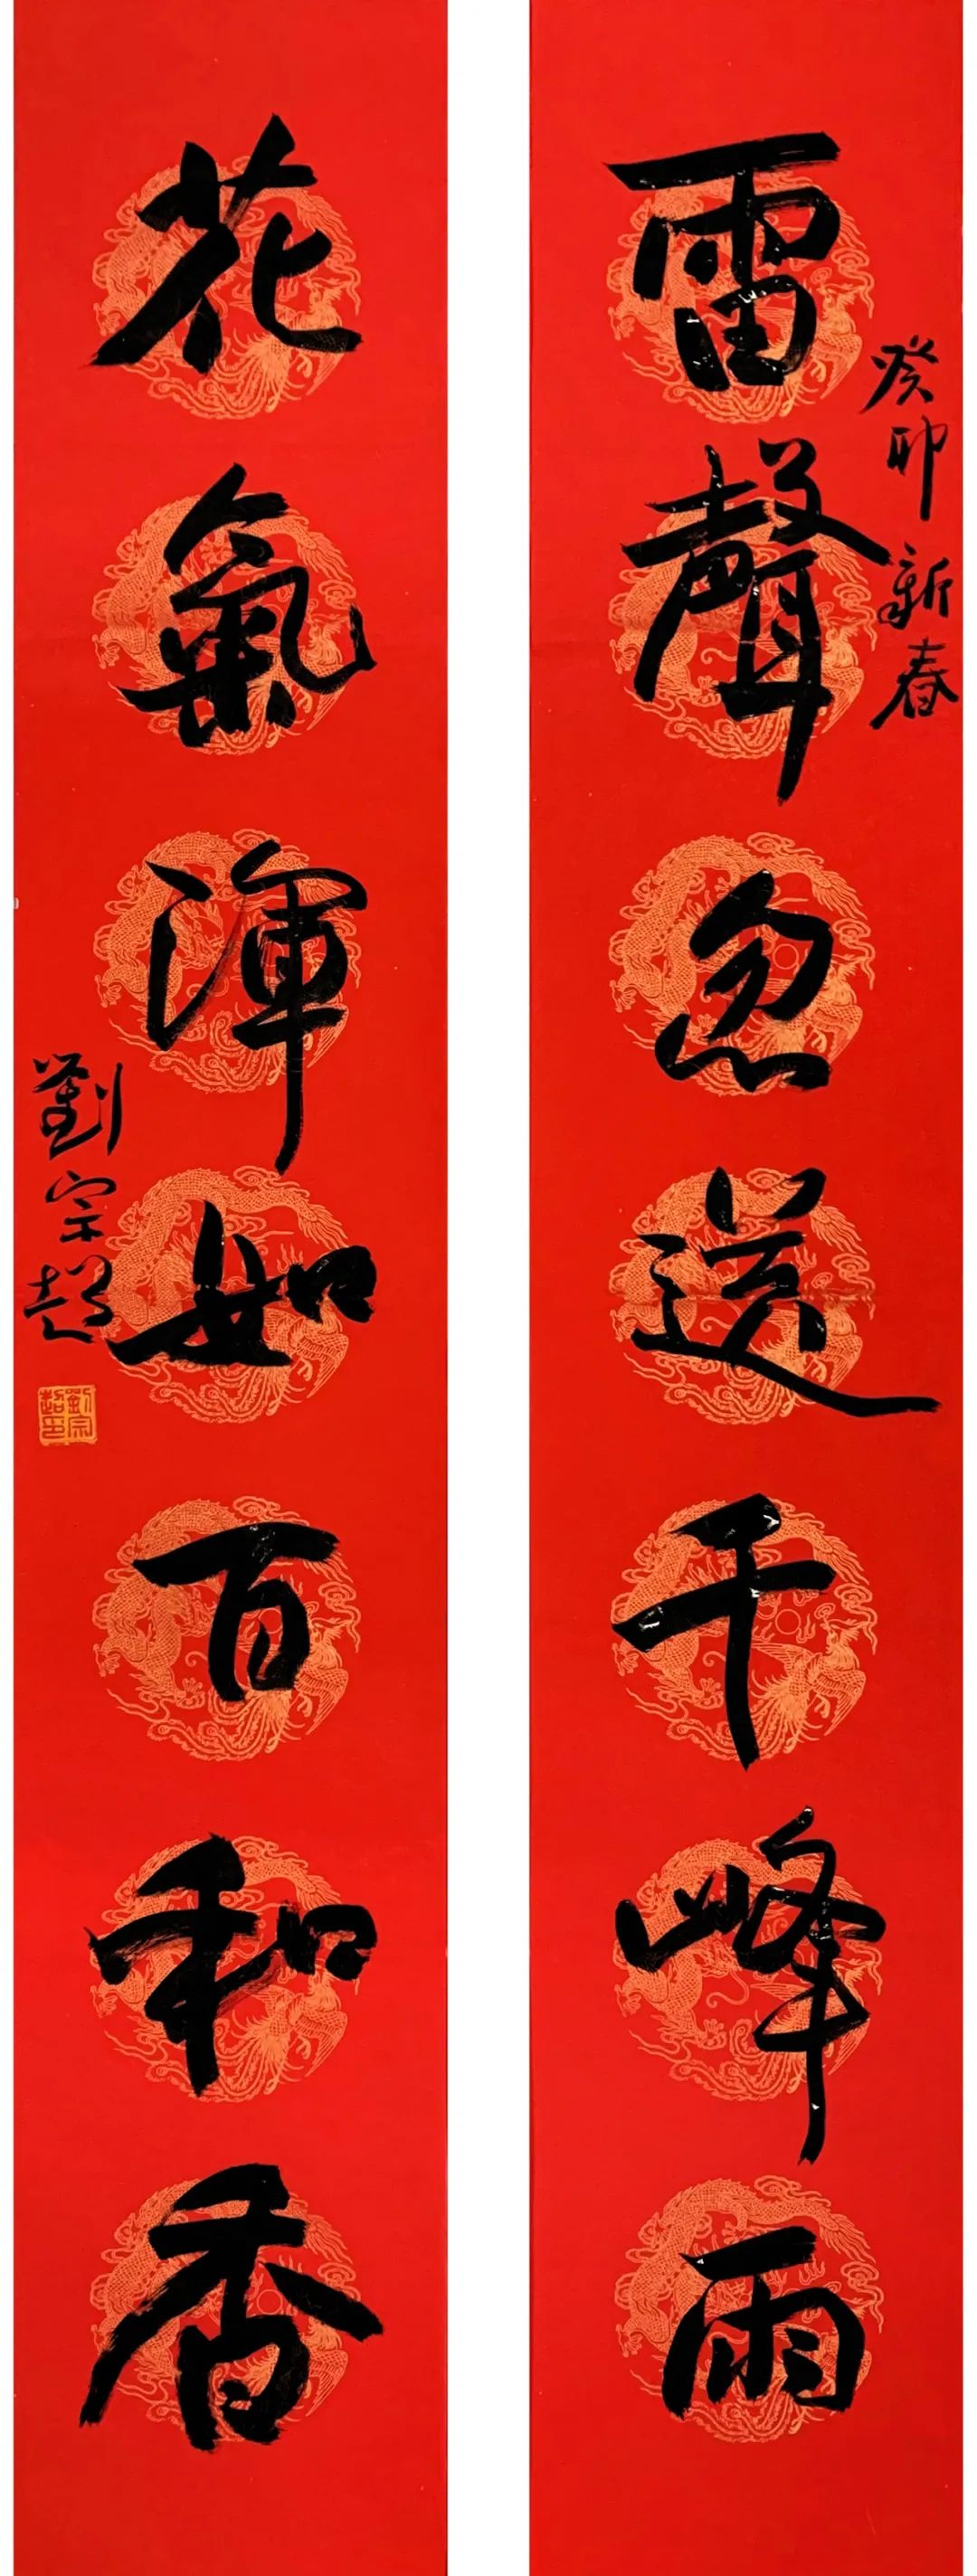 癸卯新春
雷聲忽送千峰雨
花氣渾如百和香
劉宗超
劉宗超印